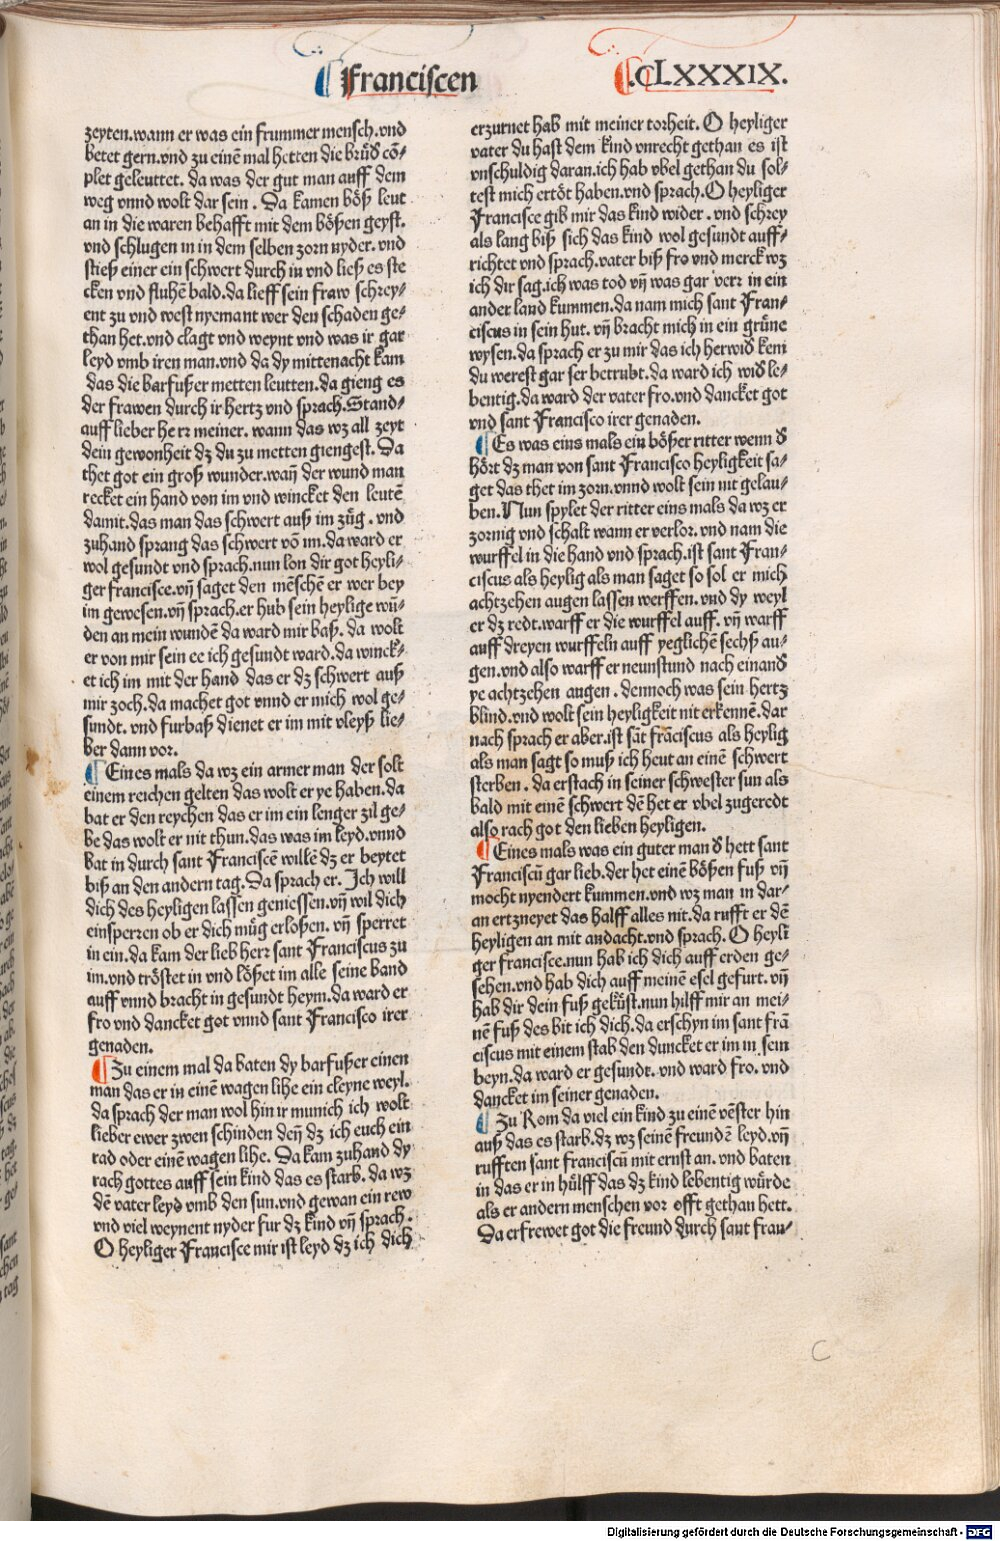 Franciscen
.CLXXXIX.
zeyten.wann er was ein frummer mensch.vnd
betet gern.vnd zu einē mal hetten die brůd̕ cō⸗
plet geleuttet. da was der gut man auff dem
weg vnnd wolt dar sein. Da kamen bóß leut
an in die waren behafft mit dem bóßen geyst.
vnd schlugen in in dem selben zorn nyder.vnd
stieß einer ein schwert durch in vnd ließ es ste
cken vnd fluhē bald.da lieff sein fraw schrey⸗
ent zu vnd west nyemant wer den schaden ge⸗
than het.vnd clagt vnd weynt vnd was ir gar
leyd vmb iren man.vnd da dy mittenacht kam
das die barfußer metten leutten.da gieng es
der frawen durch ir hertz vnd sprach.Stand⸗
auff lieber herr meiner. wann das wz all zeyt
dein gewonheit dz du zu metten giengest. Da
thet got ein groß wunder.wañ der wund man
recket ein hand von im vnd wincket den leutē
damit.das man das schwert auß im zúg. vnd
zuhand sprang das schwert vō im.da ward er
wol gesundt vnd sprach.nun lon dir got heyli⸗
ger francisce.vñ saget den mēschē er wer bey
im gewesen.vñ sprach.er hub sein heylige wū⸗
den an mein wundē da ward mir baß. da wolt
er von mir sein ee ich gesundt ward.da winck⸗
et ich im mit der hand das er dz schwert auß
mir zoch.da machet got vnnd er mich wol ge⸗
sundt. vnd furbaß dienet er im mit vleyß lie⸗
ber dann vor.
Eines mals da wz ein armer man der solt
einem reichen gelten das wolt er ye haben.da
bat er den reychen das er im ein lenger zil ge⸗
be das wolt er nit thun.das was im leyd.vnnd
bat in durch sant Franciscē willē dz er beytet
biß an den andern tag. Da sprach er. Ich will
dich des heyligen lassen geniessen.vñ wil dich
einsperren ob er dich múg erloßen. vñ sperret
in ein.da kam der lieb herr sant Franciscus zu
im.vnd tróstet in vnd lóßet im alle seine band
auff vnnd bracht in gesundt heym.da ward er
fro vnd dancket got vnnd sant Francisco irer
genaden.
Zu einem mal da baten dy barfußer einen
man das er in einē wagen lihe ein cleyne weyl.
da sprach der man wol hin ir munich ich wolt
lieber ewer zwen schinden deñ dz ich euch ein
rad oder einē wagen lihe. Da kam zuhand dy
rach gottes auff sein kind das es starb. da wz
dē vater leyd vmb den sun.vnd gewan ein rew
vnd viel weynent nyder fur dz kind vñ sprach.
O heyliger Francisce mir ist leyd dz ich dich
erzurnet hab mit meiner torheit. O heyliger
vater du hast dem kind vnrecht gethan es ist
vnschuldig daran.ich hab vbel gethan du sol⸗
test mich ertót haben.vnd sprach.O heyliger
Francisce gib mir das kind wider. vnd schrey
als lang biß sich das kind wol gesundt auff⸗
richtet vnd sprach.vater biß fro vnd merck wz
ich dir sag.ich was tod vñ was gar verr in ein
ander land kummen.da nam mich sant Fran⸗
ciscus in sein hut. vñ bracht mich in ein grúne
wysen.da sprach er zu mir das ich herwid̕ kem
du werest gar ser betrubt.da ward ich wid̕ le⸗
bentig.da ward der vater fro.vnd dancket got
vnd sant Francisco irer genaden.
Es was eins mals ein bóßer ritter wenn d̕
hórt dz man von sant Francisco heyligkeit sa⸗
get das thet im zorn.vnnd wolt sein nit gelau⸗
ben. Nun spylet der ritter eins mals da wz er
zornig vnd schalt wann er verlor.vnd nam die
wurffel in die hand vnd sprach.ist sant Fran⸗
ciscus als heylig als man saget so sol er mich
achtzehen augen lassen werffen. vnd dy weyl
er dz redt.warff er die wurffel auff. vñ warff
auff dreyen wurffeln auff yeglichē sechß au⸗
gen.vnd also warff er neunstund nach einand̕
ye achtzehen augen. dennoch was sein hertz
blind.vnd wolt sein heyligkeit nit erkennē.dar
nach sprach er aber.ist sāt frāciscus als heylig
als man sagt so muß ich heut an einē schwert
sterben. da erstach in seiner schwester sun als
bald mit einē schwert dē het er vbel zugeredt
also rach got den lieben heyligen.
Eines mals was ein guter man d̕ hett sant
Franciscū gar lieb.der het einē bóßen fuß vñ
mocht nyendert kummen.vnd wz man in dar⸗
an ertzneyet das halff alles nit.da rufft er dē
heyligen an mit andacht.vnd sprach. O heyli
ger francisce.nun hab ich dich auff erden ge⸗
sehen.vnd hab dich auff meinē esel gefurt.vñ
hab dir dein fuß gekúst.nun hilff mir an mei⸗
nē fuß des bit ich dich.da erschyn im sant frā
ciscus mit einem stab den duncket er im in sein
beyn.da ward er gesundt. vnd ward fro. vnd
dancket im seiner genaden.
Zu Rom da viel ein kind zu einē vēster hin
auß das es starb.dz wz seinē freundē leyd.vñ
rufften sant franciscū mit ernst an. vnd baten
in das er in húlff das dz kind lebentig wúrde
als er andern menschen vor offt gethan hett.
Da erfrewet got die freund durch sant fran⸗
C
Digitalisierung gefördert durch die Deutsche Forschungsgemeinschaft - DFG